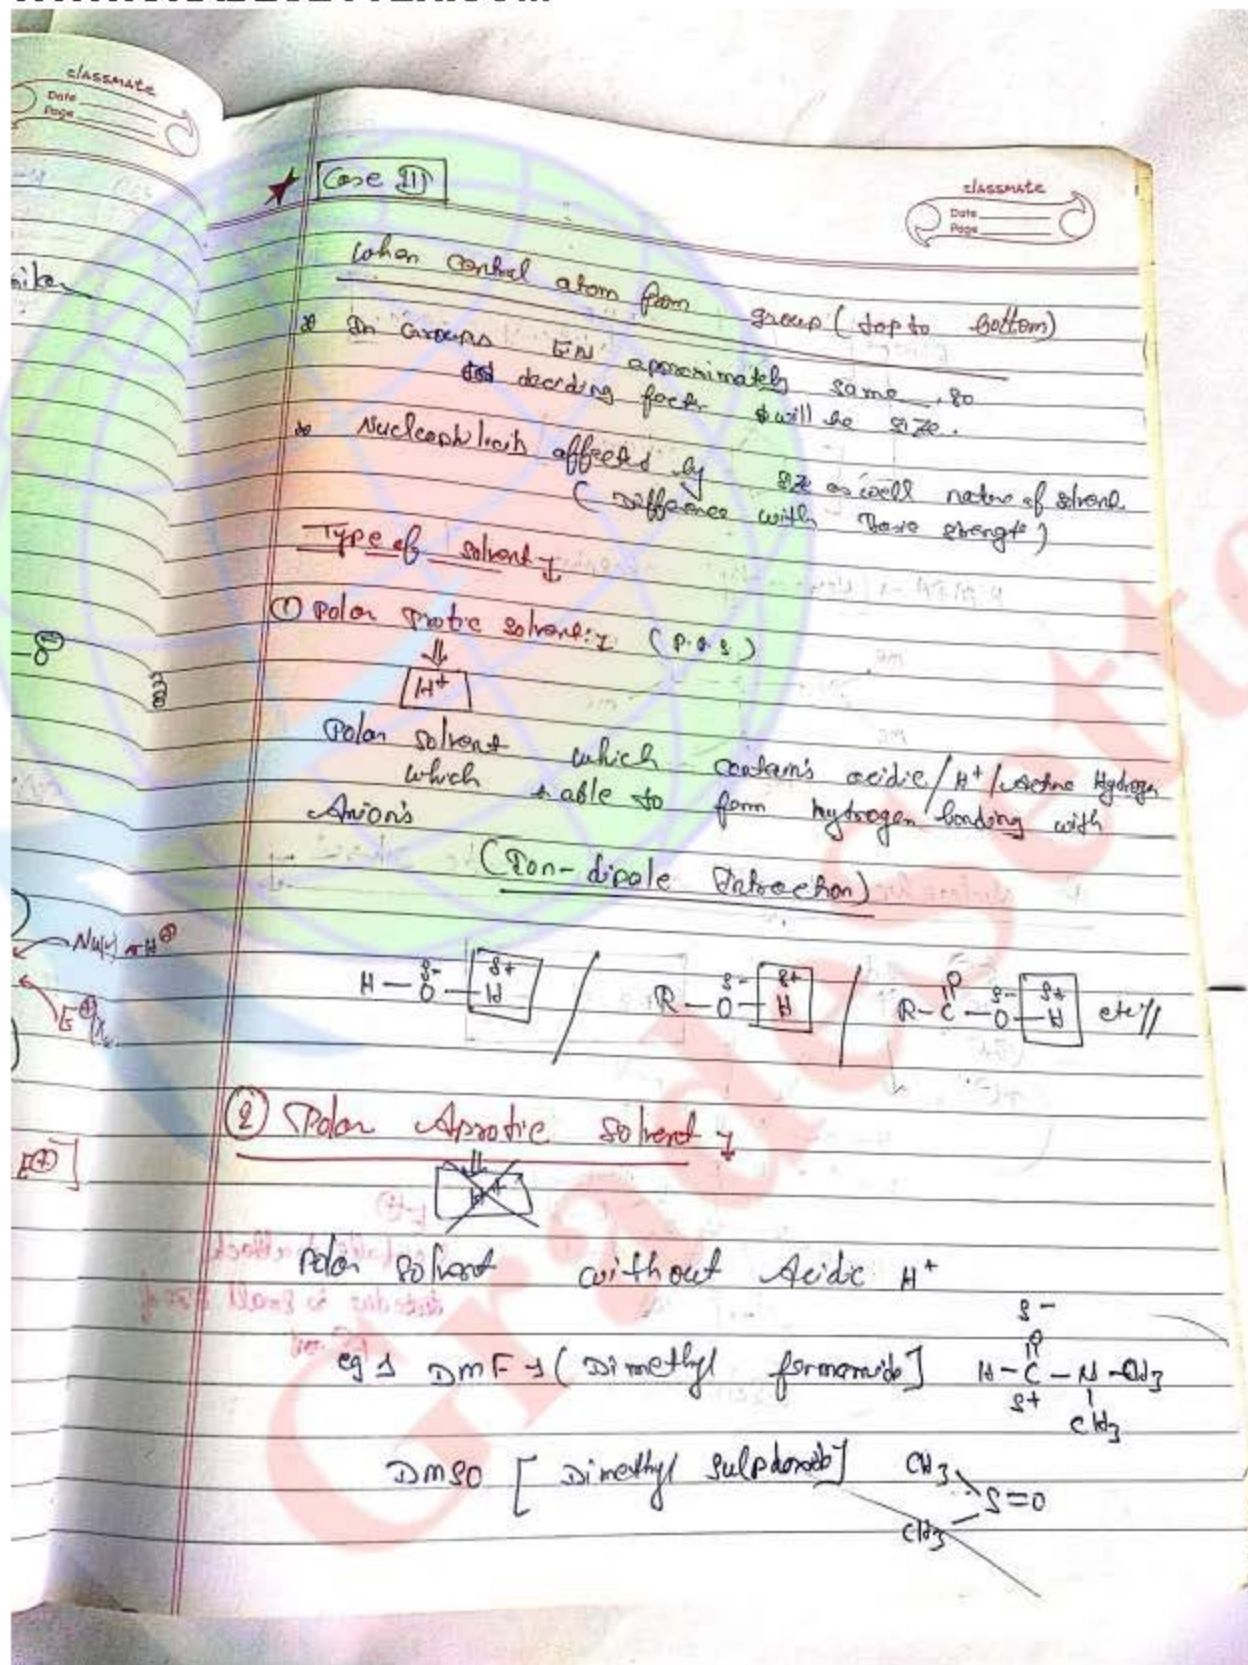 classmate
Date
Page
Case III
classmate
Date
Page
when central atom from group (top to bottom)
In Groups EN approximately same, so
deciding factor will be size.
Nucleophilicity affected by size as well nature of solvent
(Difference with Basic strength)
Type of solvent
① Polar Protic solvent: (P.P.S)
H+
Polar solvent which contain's acidic/H+/Active Hydrogen
which is able to form hydrogen bonding with
Anion's
(Ion-dipole Intraction)
H-O-H / R-O-H / R-C-O-H etc//
δ- δ+ δ- δ+ O δ- δ+
Nu(-) or H⊕
E⊕
② Polar Aprotic solvent
H+
Polar solvent without Acidic H+
δ-
O
eg DMF (Dimethyl formamide] H-C-N-CH3
δ+ CH3
DMSO [Dimethyl Sulphoxide] CH3
S=O
CH3
GradeSetter